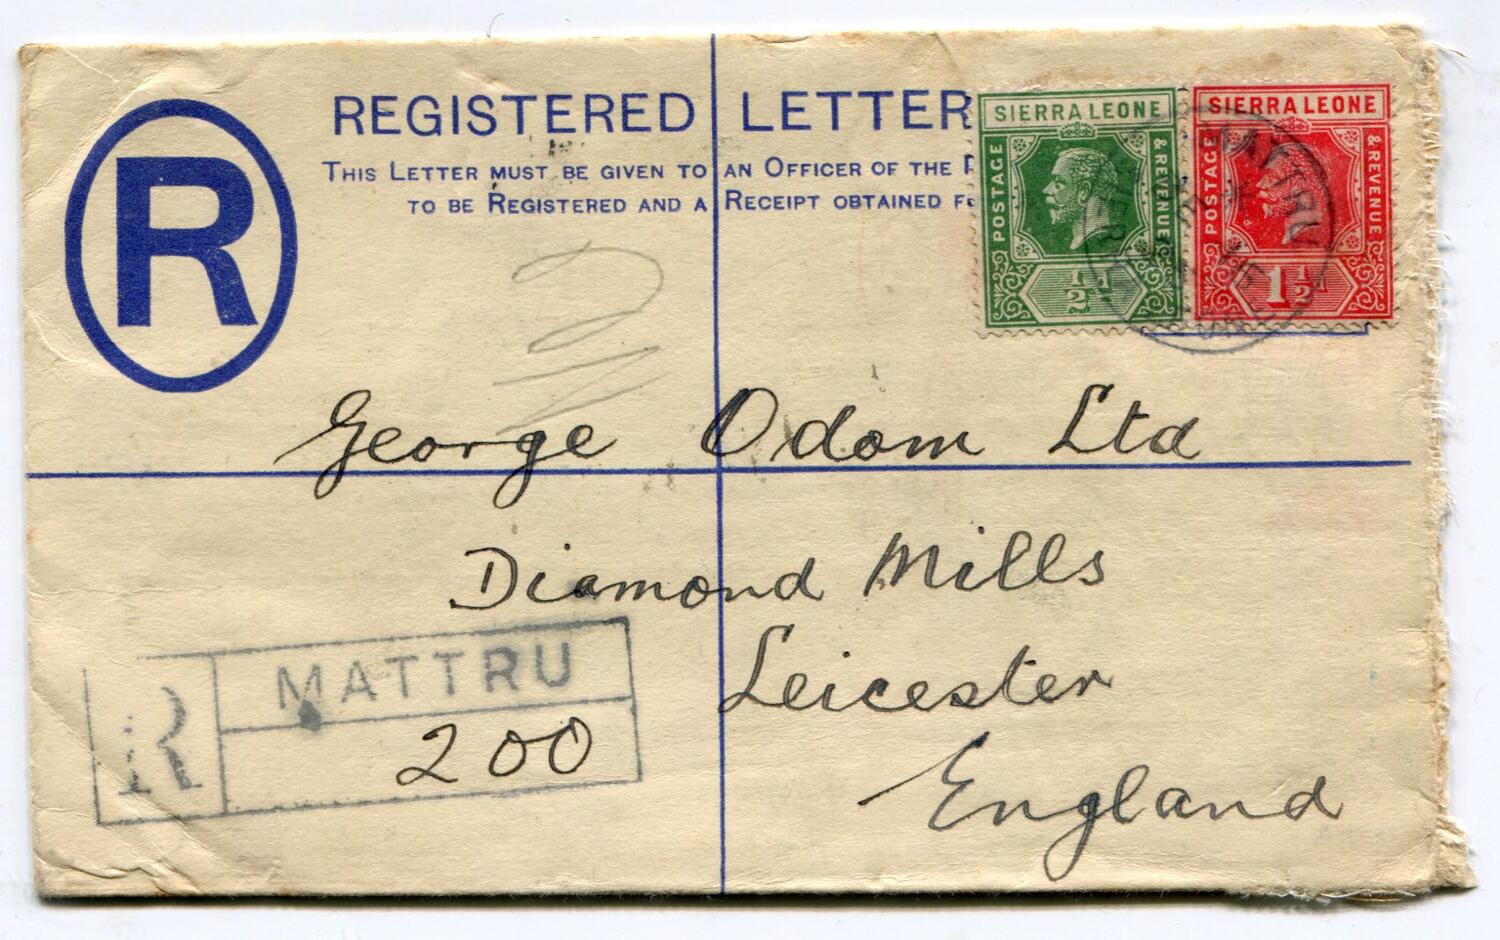 R
REGISTERED LETTER
THIS LETTER MUST BE GIVEN TO AN OFFICER OF THE
TO BE REGISTERED AND A RECEIPT OBTAINED
SIERRA LEONE
POSTAGE & REVENUE
½d
SIERRA LEONE
POSTAGE & REVENUE
1½d
MATTRU
George Odom Ltd
Diamond Mills
Leicester
England
R MATTRU
200